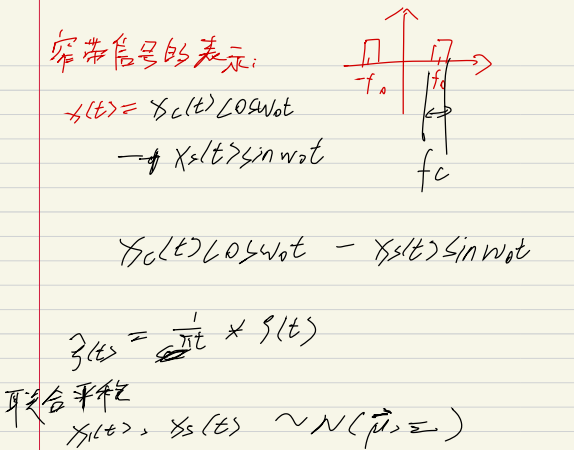 窄带信号的表示:
x(t) = x_c(t) cosω₀t
- x_s(t) sinω₀t
-f₀ f₀
f_c
x_c(t) cosω₀t - x_s(t) sinω₀t
ξ̂(t) = 1/πt * ξ(t)
联合平稳
x_c(t), x_s(t) ~ N(μ⃗, Σ)